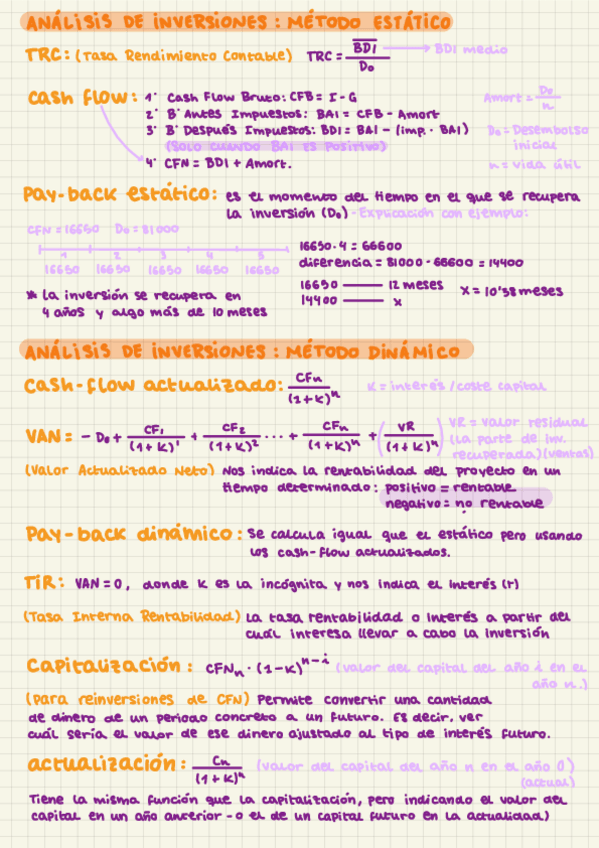 ANÁLISIS DE INVERSIONES: MÉTODO ESTÁTICO
TRC: (Tasa Rendimiento Contable) TRC = BDI / D₀ → BDI medio
Cash flow: 1º Cash Flow Bruto: CFB = I - G
Amort = D₀ / n
2º Bº Antes Impuestos: BAI = CFB - Amort
3º Bº Después Impuestos: BDI = BAI - (imp. · BAI)
D₀ = Desembolso inicial
(SOLO CUANDO BAI ES POSITIVO)
4º CFN = BDI + Amort.
n = vida útil
Pay-back estático: es el momento del tiempo en el que se recupera
la inversión (D₀) - Explicación con ejemplo:
CFN = 16650 D₀ = 81000
1 2 3 4 5
16650 16650 16650 16650 16650
16650 · 4 = 66600
diferencia = 81000 - 66600 = 14400
16650 —— 12 meses
14400 —— x
X = 10'38 meses
* La inversión se recupera en
4 años y algo más de 10 meses
ANÁLISIS DE INVERSIONES: MÉTODO DINÁMICO
Cash-flow actualizado: CFn / (1+K)ⁿ K = interés / coste capital
VAN = - D₀ + CF₁ / (1+K)¹ + CF₂ / (1+K)² ... + CFn / (1+K)ⁿ + (VR / (1+K)ⁿ)
VR = valor residual
(la parte de inv.
recuperada) (ventas)
(Valor Actualizado Neto) Nos indica la rentabilidad del proyecto en un
tiempo determinado: positivo = rentable
negativo = no rentable
Pay-back dinámico: Se calcula igual que el estático pero usando
los cash-flow actualizados.
TIR: VAN = 0, donde K es la incógnita y nos indica el interés (r)
(Tasa Interna Rentabilidad) La tasa rentabilidad o interés a partir del
cuál interesa llevar a cabo la inversión
Capitalización: CFNn · (1-K)ⁿ⁻ⁱ (valor del capital del año i en el
año n.)
(para reinversiones de CFN) Permite convertir una cantidad
de dinero de un periodo concreto a un futuro. Es decir, ver
cuál sería el valor de ese dinero ajustado al tipo de interés futuro.
actualización: Cn / (1+K)ⁿ (valor del capital del año n en el año 0)
(actual)
Tiene la misma función que la capitalización, pero indicando el valor del
capital en un año anterior - o el de un capital futuro en la actualidad)